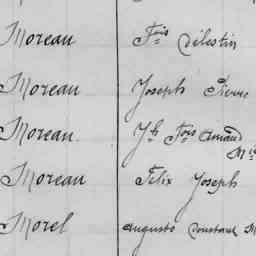 Moreau Fois Célestin
Moreau Joseph Pierre
Moreau Jh Fois Amand
Mie
Moreau Félix Joseph
Morel Auguste Constant M